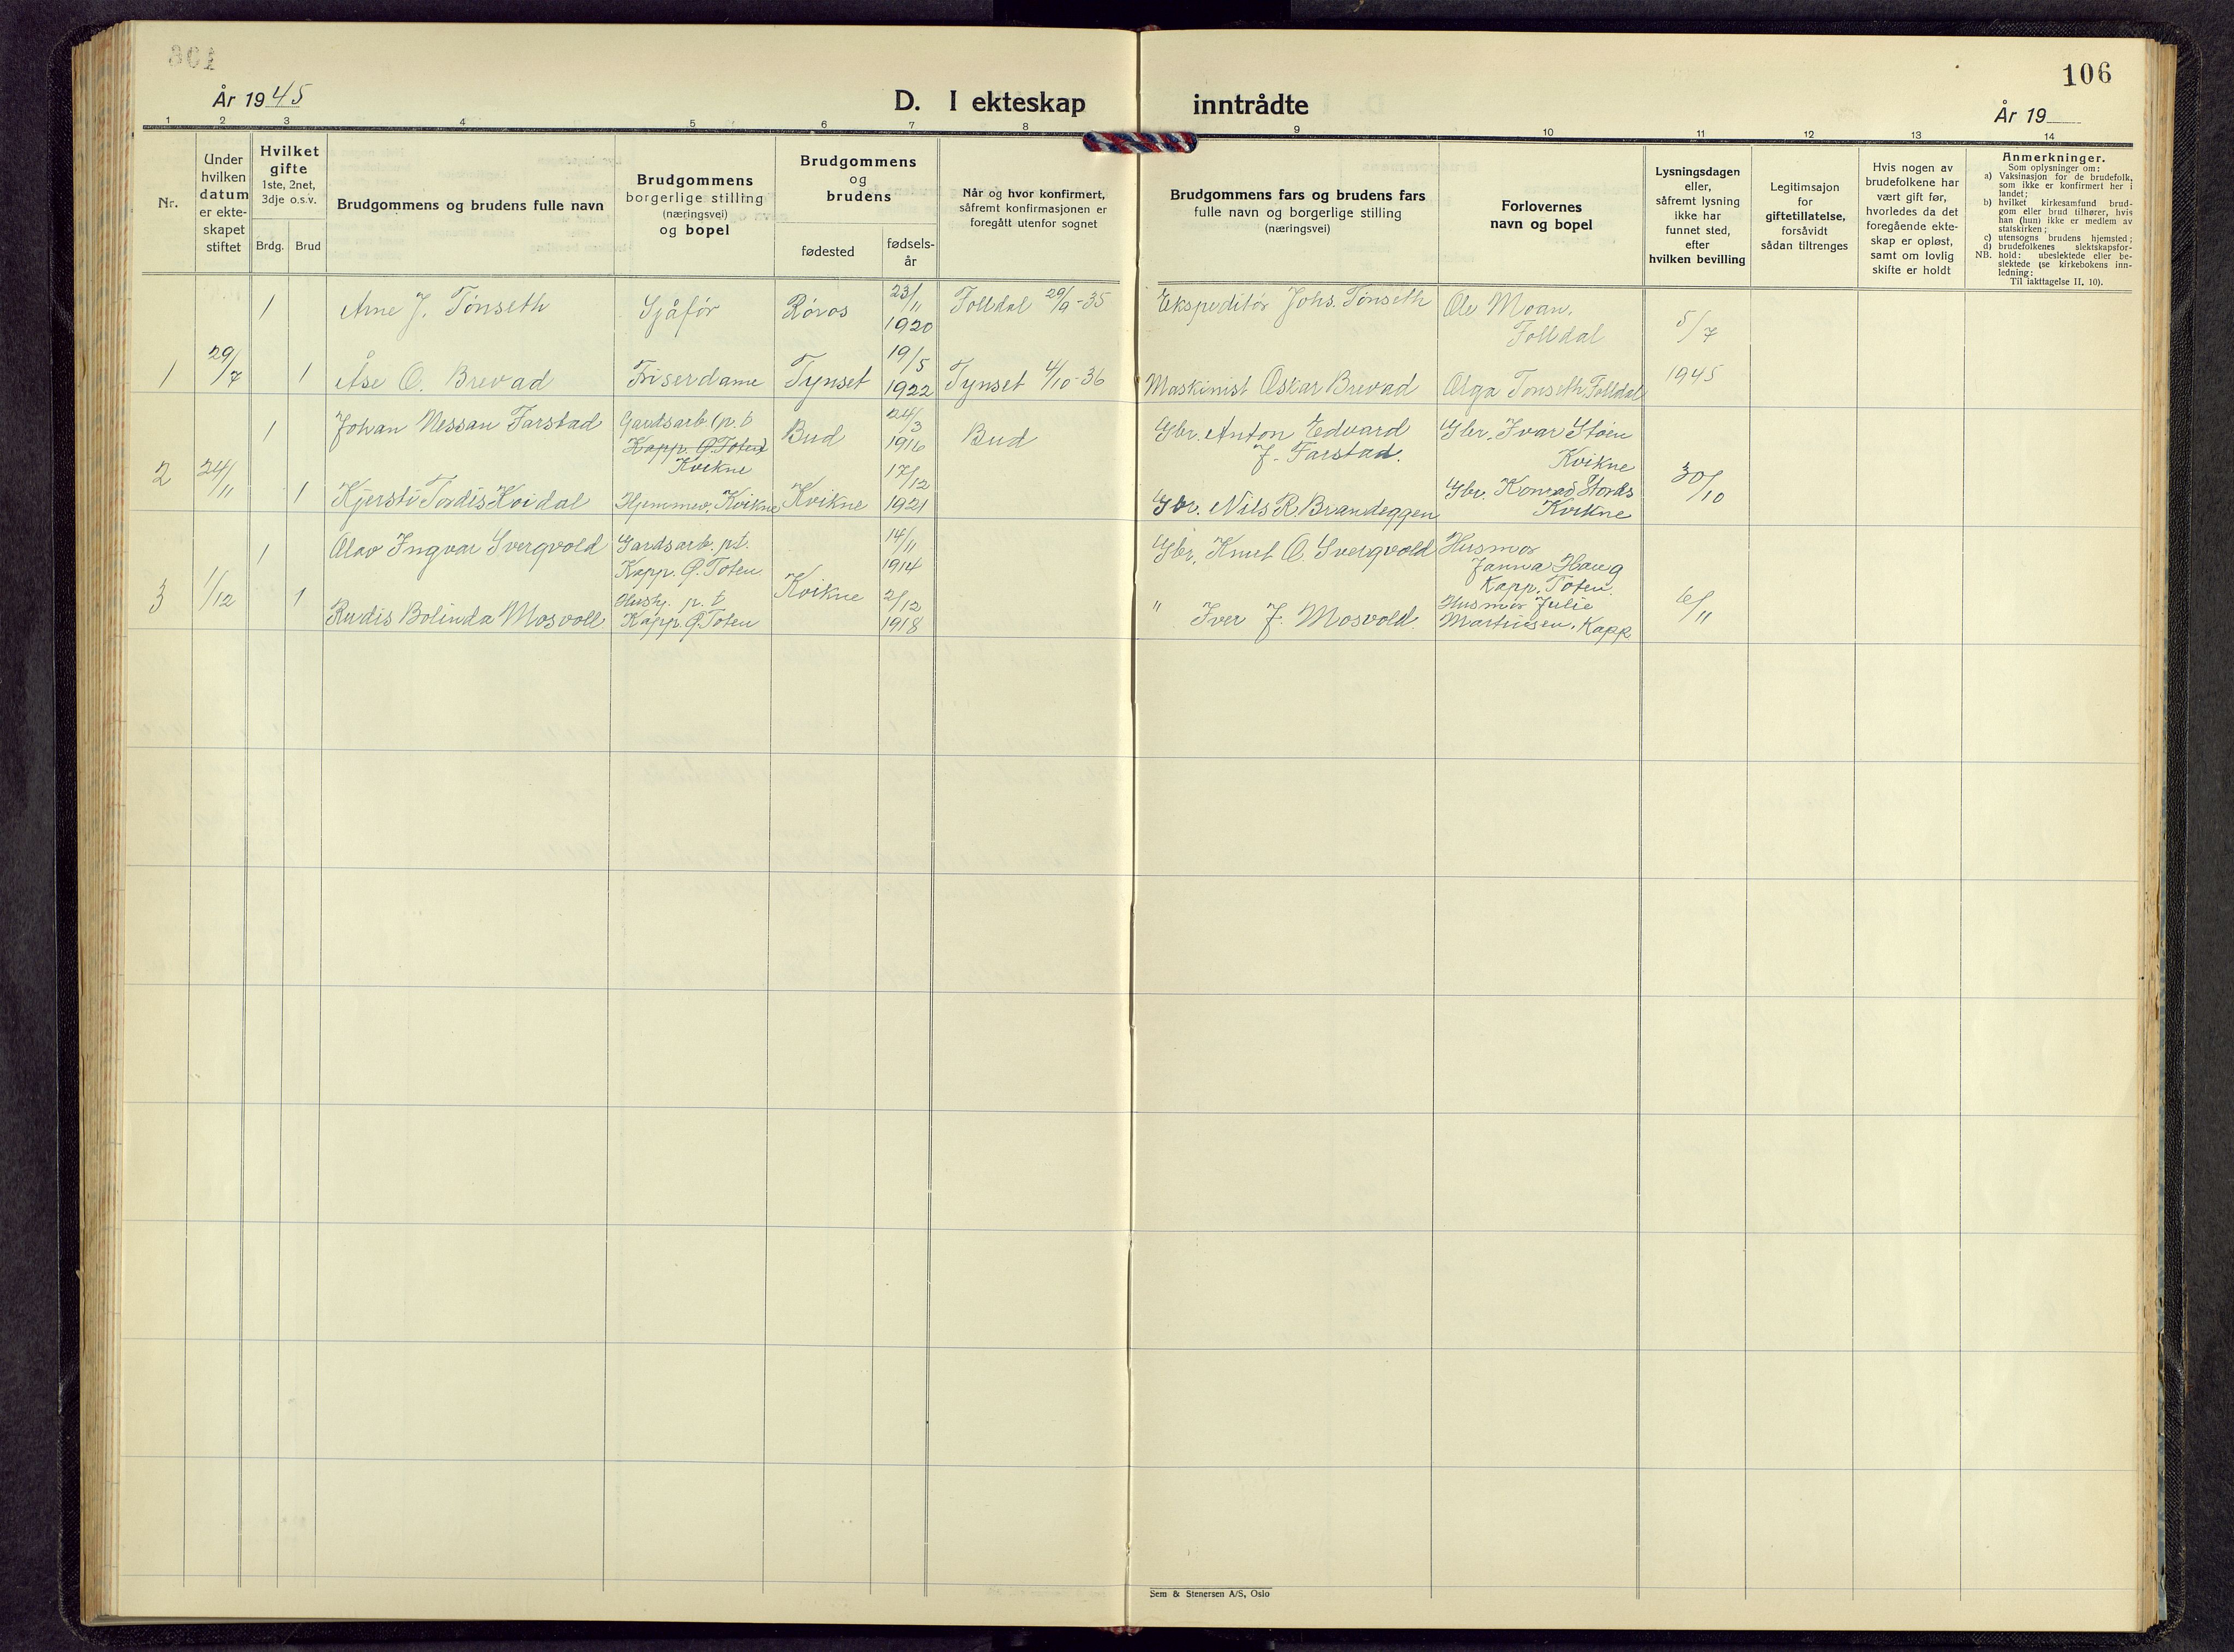 106
År 1945
D. I ekteskap inntrådte
År 19
1 2 3 4 5 6 7 8 9 10 11 12 13 14
Nr.
Under
hvilken
datum
er ekte-
skapet
stiftet
Hvilket
gifte
1ste, 2net,
3dje o.s.v.
Brdg. Brud
Brudgommens og brudens fulle navn
Brudgommens
borgerlige stilling
(næringsvei)
og bopel
Brudgommens
og
brudens
fødested
fødsels-
år
Når og hvor konfirmert,
såfremt konfirmasjonen er
foregått utenfor sognet
Brudgommens fars og brudens fars
fulle navn og borgerlige stilling
(næringsvei)
Forlovernes
navn og bopel
Lysningsdagen
eller,
såfremt lysning
ikke har
funnet sted,
efter
hvilken bevilling
Legitimsajon
for
giftetillatelse,
forsåvidt
sådan tiltrenges
Hvis nogen av
brudefolkene har
vært gift før,
hvorledes da det
foregående ekte-
skap er opløst,
samt om lovlig
skifte er holdt
Anmerkninger.
Som oplysninger om:
a) Vaksinasjon for de brudefolk,
som ikke er konfirmert her i
landet;
b) hvilket kirkesamfund brud-
gom eller brud tilhører, hvis
han (hun) ikke er medlem av
statskirken;
c) utensogns brudens hjemsted;
d) brudefolkenes slektskapsfor-
NB. hold: ubeslektede eller be-
slektede (se kirkebokens inn-
ledning:
Til iakttagelse II. 10).
1 Arne J. Tønseth Sjåfør Røros 23/11 1920 Folldal 29/9-35 Ekspeditør Johs. Tønseth Ole Moan, Folldal 5/7
1 29/7 1 Åse O. Brevad Friserdame Tynset 19/5 1922 Tynset 4/10-36 Maskinist Oskar Brevad Olga Tønseth, Folldal 1945
1 Johan Nessan Farstad Gardsarb. (p.t. Kapp. Ø. Toten Kvikne Bud 24/3 1916 Bud Gbr. Anton Edvard J. Farstad. Gbr. Ivar Støen Kvikne
2 24/11 1 Kjersti Tordis Koidal Hjemmev. Kvikne Kvikne 17/12 1921 Gbr. Nils R. Brandeggen Gbr. Konrad Kvikne 30/10
1 Olav Ingvar Svergvold Gardsarb. pt. Kapp. Ø. Toten 14/11 1914 Gbr. Knut O. Svergvold Husmor Janna Haug Kapp. Toten.
3 1/12 1 Rudis Bolinda Mosvoll Hush. p. t. Kapp. Ø. Toten Kvikne 2/12 1918 " Iver J. Mosvold. Husmor Julie Martinsen, Kapp 6/11
Sem & Stenersen A/S, Oslo